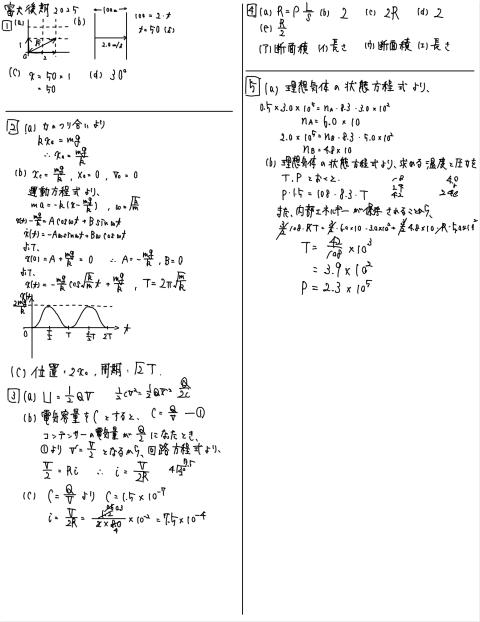 富大後期 2025
1 (a)
(b)
100m
2.0m/s
100 = 2·t
t = 50 (s)
(c) x = 50 × 1
= 50
(d) 30°
2 (a) 力のつり合いより
kx₀ = mg
∴ x₀ = mg/k
(b) x_c = mg/k , x₀ = 0 , v₀ = 0
運動方程式より、
ma = -k(x - mg/k) , ω = √(k/m)
x(t) - mg/k = A cos ωt + B sin ωt
ẋ(t) = -Aω sin ωt + Bω cos ωt
よって、
x(0) = A + mg/k = 0 ∴ A = -mg/k , B = 0
よって、
x(t) = -mg/k cos √(k/m) t + mg/k , T = 2π√(m/k)
x(t)
2mg/k
0 T/2 T 3/2T 2T t
(c) 位置・2x₀ , 周期・√2 T .
3 (a) U = 1/2 QV 1/2 CV² = 1/2 QV Q²/2C
(b) 電気容量をCとすると、 C = Q/V ―①
コンデンサーの電気量が Q/2 になったとき、
①より V' = V/2 となるから、回路方程式より、
V/2 = Ri ∴ i = V/2R
(c) C = Q/V より C = 1.5 × 10⁻⁷
i = V/2R = × 10⁻² = 7.5 × 10⁻⁴
4 (a) R = ρ l/S (b) 2 (c) 2R (d) 2
(e) R/2
(ア) 断面積 (イ) 長さ (ウ) 断面積 (エ) 長さ
5 (a) 理想気体の状態方程式より、
0.5 × 3.0 × 10⁵ = n_A · 8.3 · 3.0 × 10²
n_A = 6.0 × 10
2.0 × 10⁵ = n_B · 8.3 · 5.0 × 10²
n_B = 4.8 × 10
(b) 理想気体の状態方程式より、求める温度と圧力を
T , P とおくと、
P · 1.5 = 108 · 8.3 · T
また、内部エネルギーが保存されることから、
3/2 · 108 · RT = 3/2 · 60 × 10 · 3.0 × 10² + 3/2 4.8 × 10 · R · 5.0 × 10²
T = 42/108 × 10³
= 3.9 × 10²
P = 2.3 × 10⁵